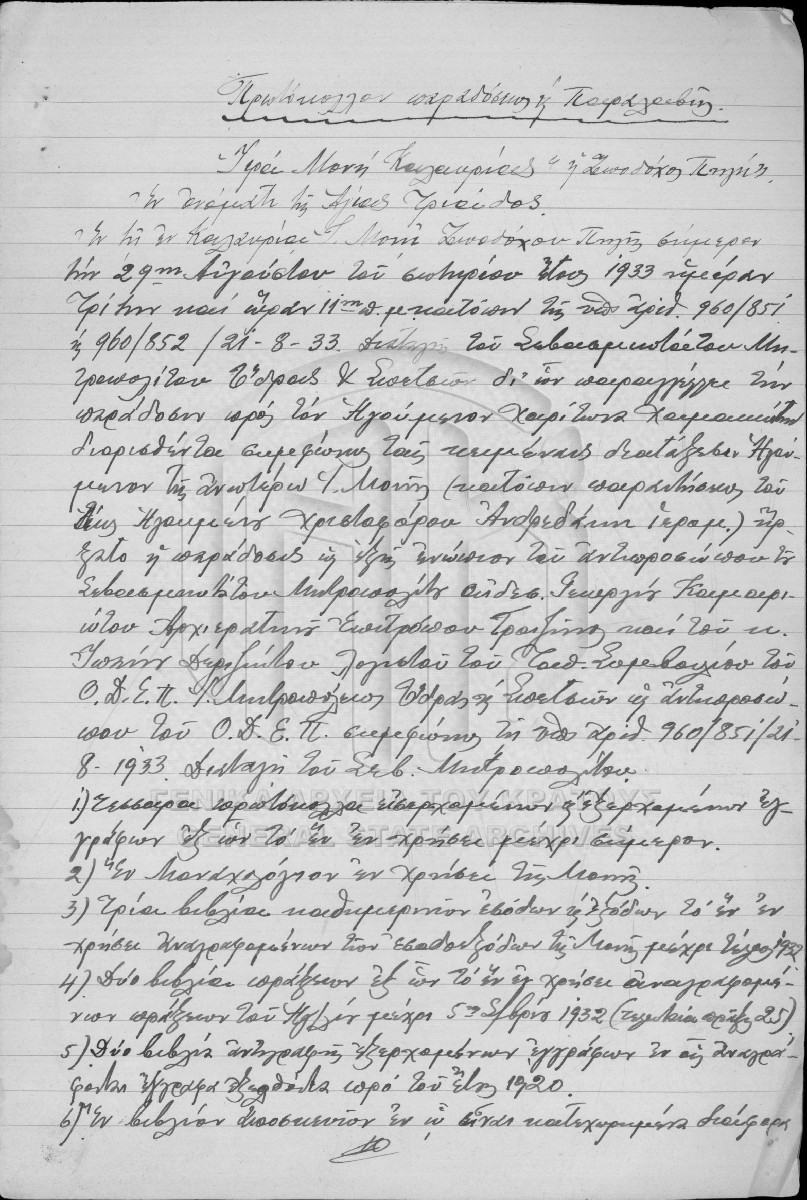 Πρωτόκολλον παραδόσεως ἤ Παραλαβῆς.
Ἱερά Μονή Καλαυρίας "ἡ Ζωοδόχος Πηγή".
Ἐν ὀνόματι τῆς Ἁγίας Τριάδος.
Ἐν τῇ ἐν Καλαυρίᾳ Ἱ. Μονῇ Ζωοδόχου Πηγῆς σήμερον
τήν 29ην Αὐγούστου τοῦ σωτηρίου ἔτους 1933 ἡμέραν
Τρίτην καί ὥραν 11ην π.μ. κατόπιν τῆς ὑπ' ἀριθ. 960/851
ἤ 960/852 /21-8-33. Διαταγῆς τοῦ Σεβασμιωτάτου Μη-
τροπολίτου Ὕδρας & Σπετσῶν δι' ὧν παραγγέλλει τήν
παράδοσιν πρός τόν Ἡγούμενον Χαρίτωνα
διορισθέντα συμφώνως ταῖς κειμέναις διατάξεσιν Ἡγού-
μενον τῆς ἀνωτέρω Ἱ. Μονῆς (κατόπιν παραιτήσεως τοῦ
τέως Ἡγουμένου Χριστοφόρου Ἀνδρεδάκη ἱερομ.) ἤρ-
ξατο ἡ παράδοσις ὡς ἑξῆς ἐνώπιον τοῦ ἀντιπροσώπου τοῦ
Σεβασμιωτάτου Μητροπολίτου αἰδεσ. Γεωργίου Καμαρι-
ώτου Ἀρχιερατικοῦ Ἐπιτρόπου Τροιζῆνος καί τοῦ κ.
Ἰωάννου λογιστοῦ τοῦ Τοπ. Συμβουλίου τοῦ
Ο.Δ.Ε.Π. Ἱ. Μητροπόλεως Ὕδρας ἤ Σπετσῶν ὡς ἀντιπροσώ-
που τοῦ Ο.Δ.Ε.Π. συμφώνως τῇ ὑπ' ἀριθ. 960/851/21-
8-1933 Διαταγῇ τοῦ Σεβ. Μητροπολίτου.
1) Τέσσαρα πρωτόκολλα εἰσερχομένων ἤ ἐξερχομένων ἐγ-
γράφων ἐξ ὧν τό ἕν ἐν χρήσει μέχρι σήμερον.
2) Ἕν Μοναχολόγιον ἐν χρήσει τῆς Μονῆς.
3) Τρία βιβλία καθημερινῶν ἐσόδων ἤ ἐξόδων τό ἕν ἐν
χρήσει ἀναγραφομένων τῶν ἐσοδοεξόδων τῆς Μονῆς μέχρι τέλος 1932
4) Δύο βιβλία πράξεων ἐξ ὧν τό ἕν ἐν χρήσει ἀναγραφομέ-
νων πράξεων τοῦ Ἡγ/λίου μέχρι 5ης 8/βρίου 1932 (τελευταία πρᾶξις 25)
5) Δύο βιβλία ἀντιγραφῆς ἐξερχομένων ἐγγράφων ἐν οἷς ἀναγρά-
φονται ἔγγραφα ἐξελθόντα πρό τοῦ ἔτους 1920.
6) Ἕν βιβλίον ἀποσκευῶν ἐν ᾧ εἶναι κατεχωρημένα διάφορα
ΓΕΝΙΚΑ ΑΡΧΕΙΑ ΤΟΥ ΚΡΑΤΟΥΣ
GENERAL STATE ARCHIVES